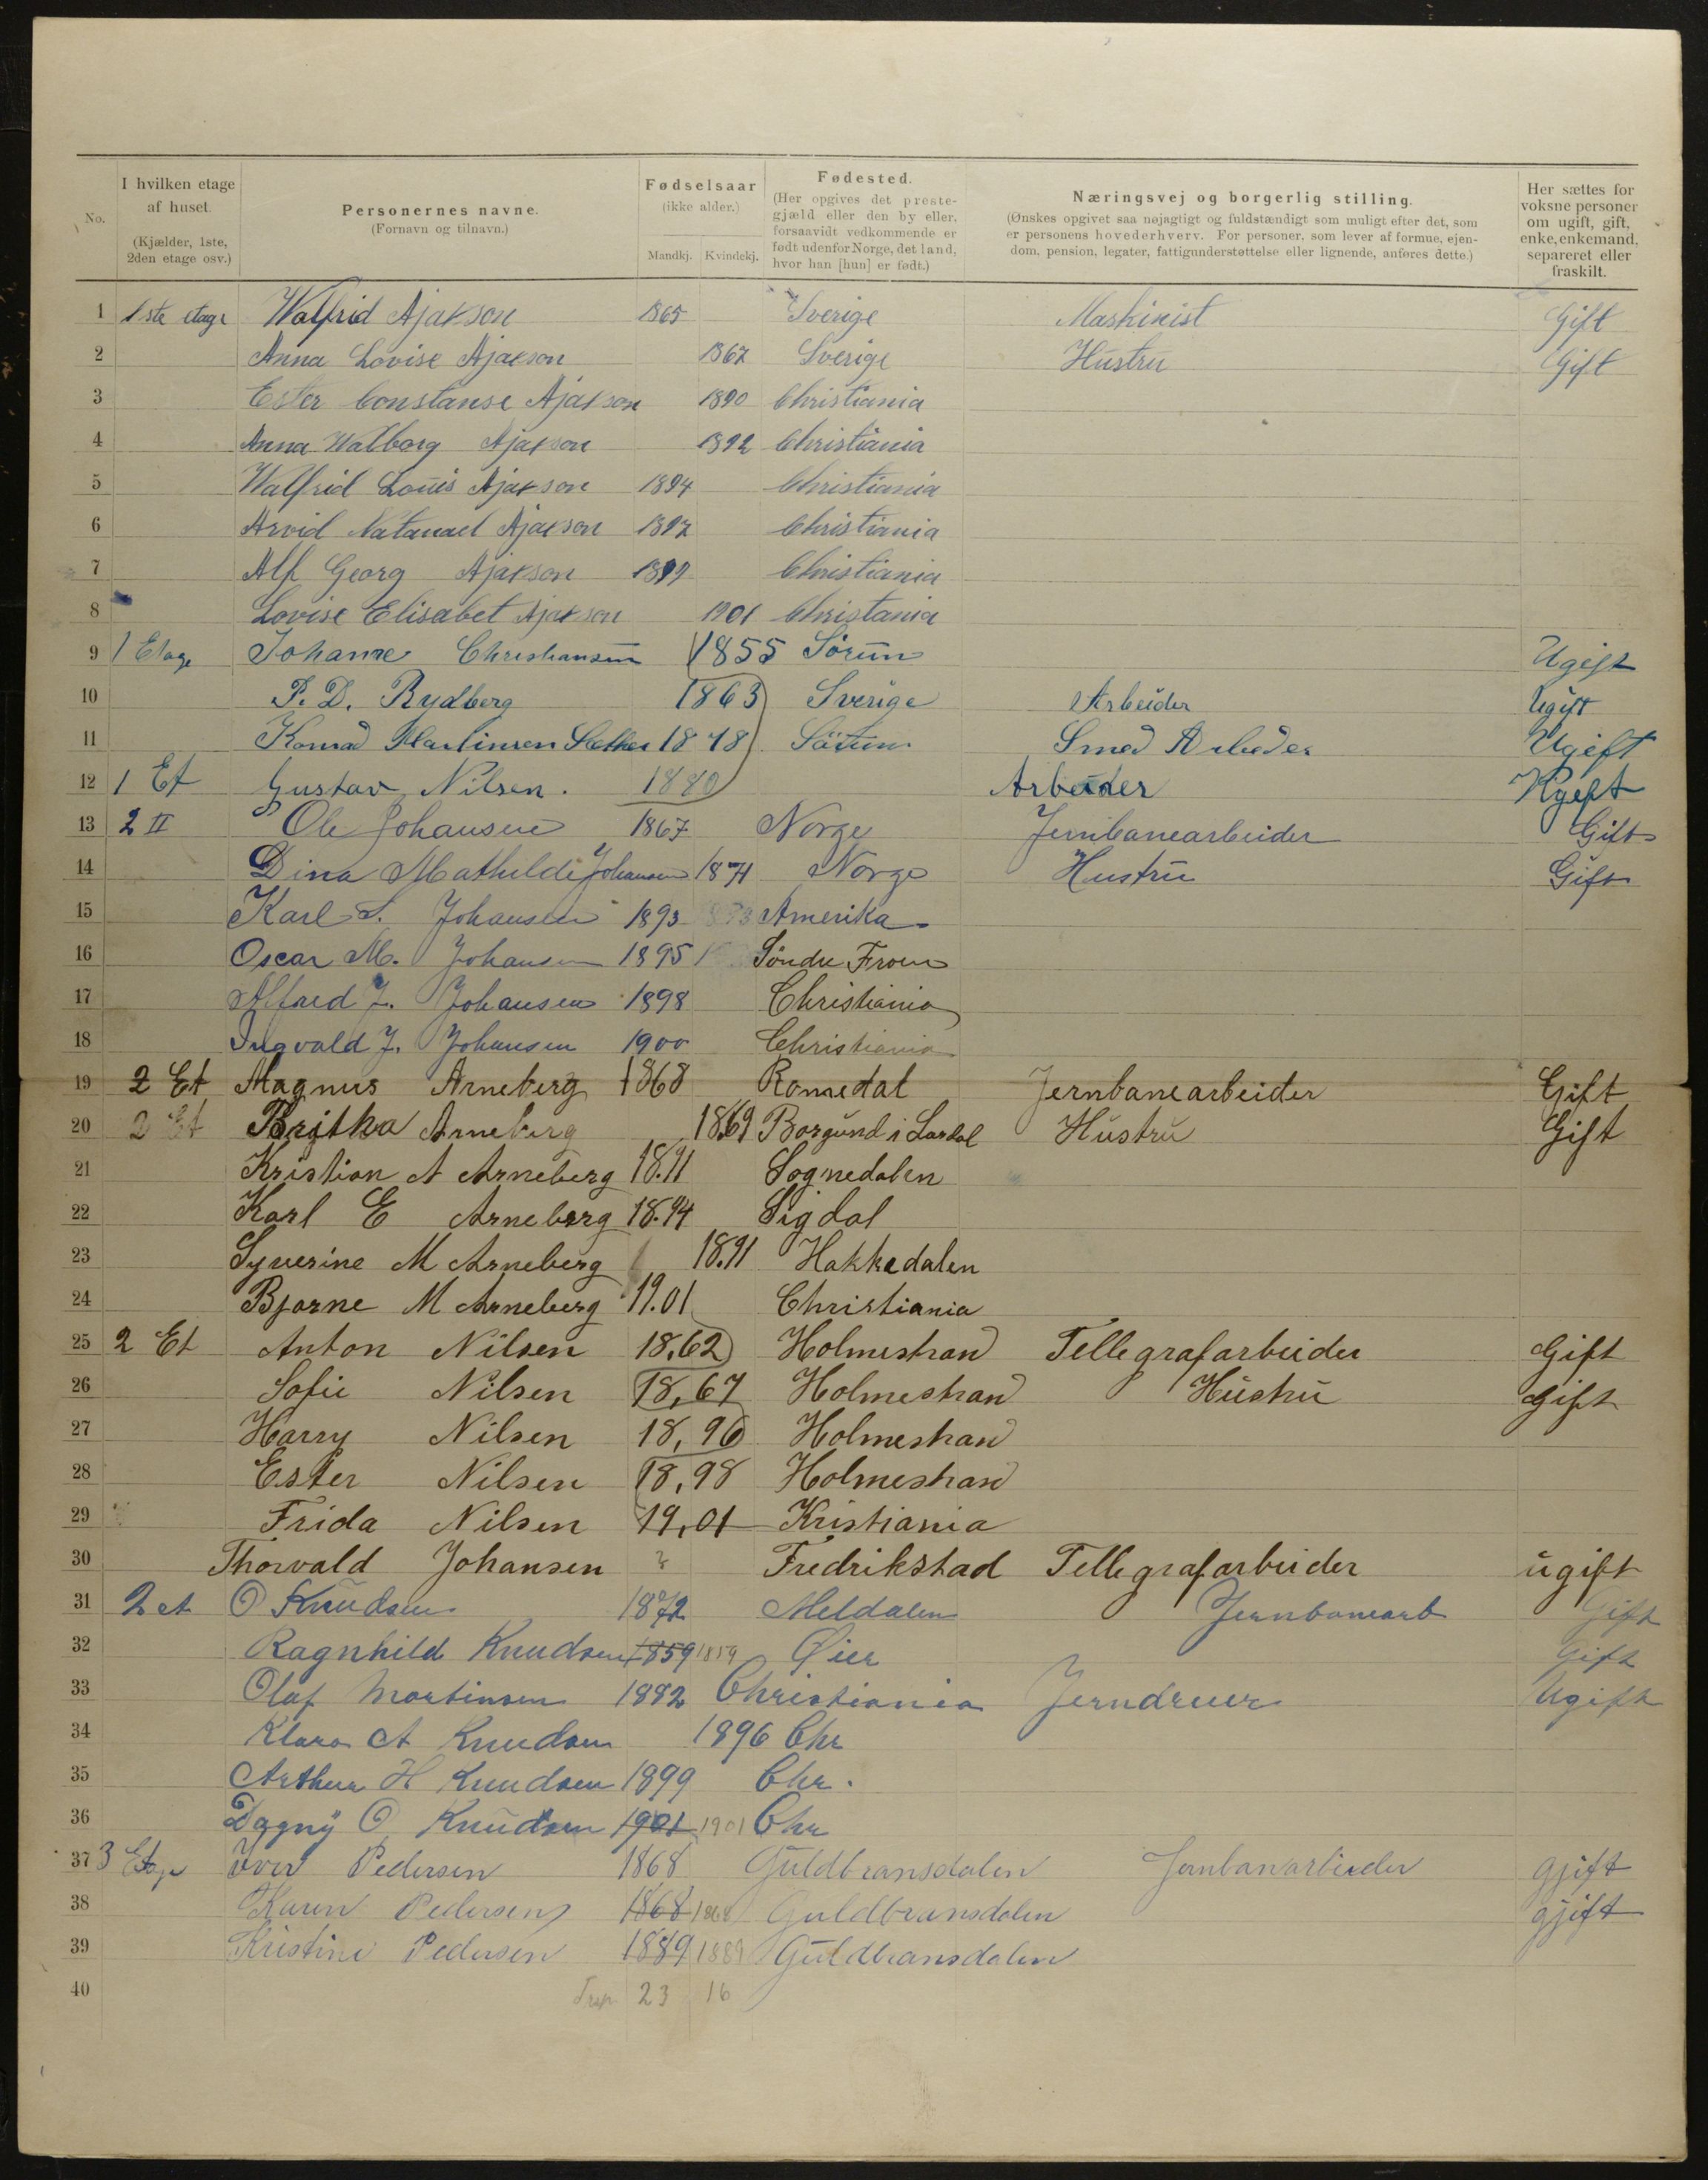 No.
I hvilken etage af huset.
(Kjælder, 1ste, 2den etage osv.)
Personernes navne.
(Fornavn og tilnavn.)
Fødselsaar
(ikke alder.)
Mandkj. Kvindekj.
Fødested.
(Her opgives det prestegjæld eller den by eller, forsaavidt vedkommende er født udenfor Norge, det land, hvor han [hun] er født.)
Næringsvej og borgerlig stilling.
(Ønskes opgivet saa nøjagtigt og fuldstændigt som muligt efter det, som er personens hovederhverv. For personer, som lever af formue, ejendom, pension, legater, fattigunderstøttelse eller lignende, anføres dette.)
Her sættes for voksne personer om ugift, gift, enke, enkemand, separeret eller fraskilt.
1 1ste etage Walfrid Ajakson 1865 Sverige Maskinist Gift
2 Anna Lovise Ajakson 1867 Sverige Hustru Gift
3 Ester Constanse Ajakson 1890 Christiania
4 Anna Walborg Ajakson 1892 Christiania
5 Walfrid Louis Ajakson 1894 Christiania
6 Arvid Natanael Ajakson 1897 Christiania
7 Alf Georg Ajakson 1899 Christiania
8 Lovise Elisabet Ajakson 1901 Christania
9 1 Etage Johanne Christiansen 1855 Sörum Ugift
10 P. D. Rydberg 1863 Sverige Arbeider Ugift
11 Konrad Martinsen 1878 Smed Arbeder Ugift
12 1 Et Gustav Nilsen. 1880 Arbeider Ugept
13 2 II Ole Johansen 1867 Norge Jernbanearbeider Gift
14 Dina Mathilde Johansen 1871 Norge Hustru Gift
15 Karl S. Johansen 1893 Amerika
16 Oscar M. Johansen 1895 Söndre Fron
17 Alfard J. Johansen 1898 Christiania
18 Ingvald J. Johansen 1900 Christiania
19 2 Et Magnus Arneberg 1868 Romedal Jernbanearbeider Gift
20 2 Et Britha Arneberg 1869 Borgund i Lardal Hustru Gift
21 Kristian A Arneberg 18.91 Sognedalen
22 Karl E Arneberg 18.94 Sigdal
23 Syverine M Arneberg 18.91 Hakkedalen
24 Bjarne M Arneberg 19.01 Christiania
25 2 Et Anton Nilsen 18,62 Holmestrand Tellegrafarbeider Gift
26 Sofie Nilsen 18,67 Holmestrand Hustru Gift
27 Harry Nilsen 18,96 Holmestrand
28 Ester Nilsen 18,98 Holmestrand
29 Frida Nilsen 19,01 Kristiania
30 Thorvald Johansen ? Fredrikstad Tellegrafarbeider ugift
31 2 et O Knudsen 1872 Meldalen Jernbanearb Gift
32 Ragnhild Knudsen 1859 1859 Øier Gift
33 Olaf Martinsen 1882 Christiania Jerndreier Ugift
34 Klara A Knudsen 1896 Chr
35 Arthur H Knudsen 1899 Chr.
36 Dagny O Knudsen 1901 1901 Chr
37 3 Etage Iver Pedersen 1868 Guldbransdalen Jernbanarbieder gjift
38 Karen Pedersen 1868 1868 Guldbransdalen gjift
39 Kristine Pedersen 1889 1889 Guldbransdalen
40 23 16